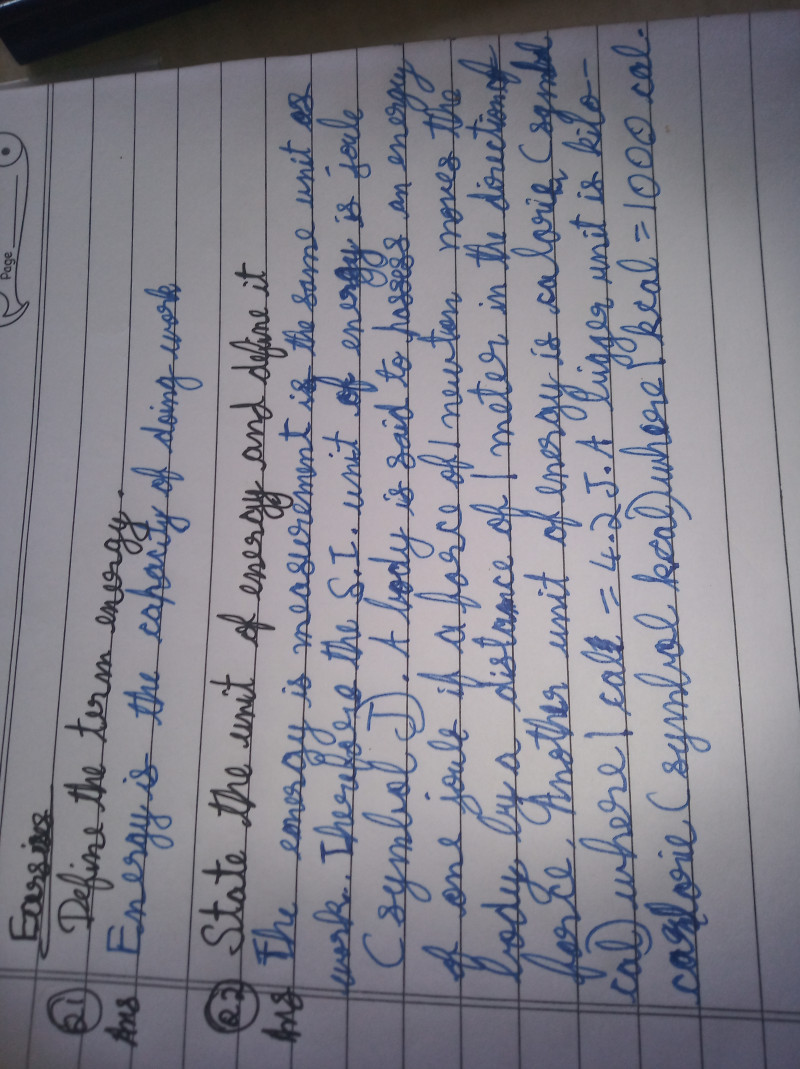 Page
Exersise
Q1 Define the term energy.
Ans Energy is the capacity of doing work
Q2 State the unit of energy and define it
Ans The energy is measurement is the same unit as
work. Therefore the S.I. unit of energy is joule
(symbol J). A body is said to possess an energy
of one joule if a force of 1 newton moves the
body by a distance of 1 meter in the direction of
force. Another unit of energy is calorie (symbol
cal) where 1 cal = 4.2 J. A bigger unit is kilo-
calorie (symbol kcal) where 1 kcal = 1000 cal.